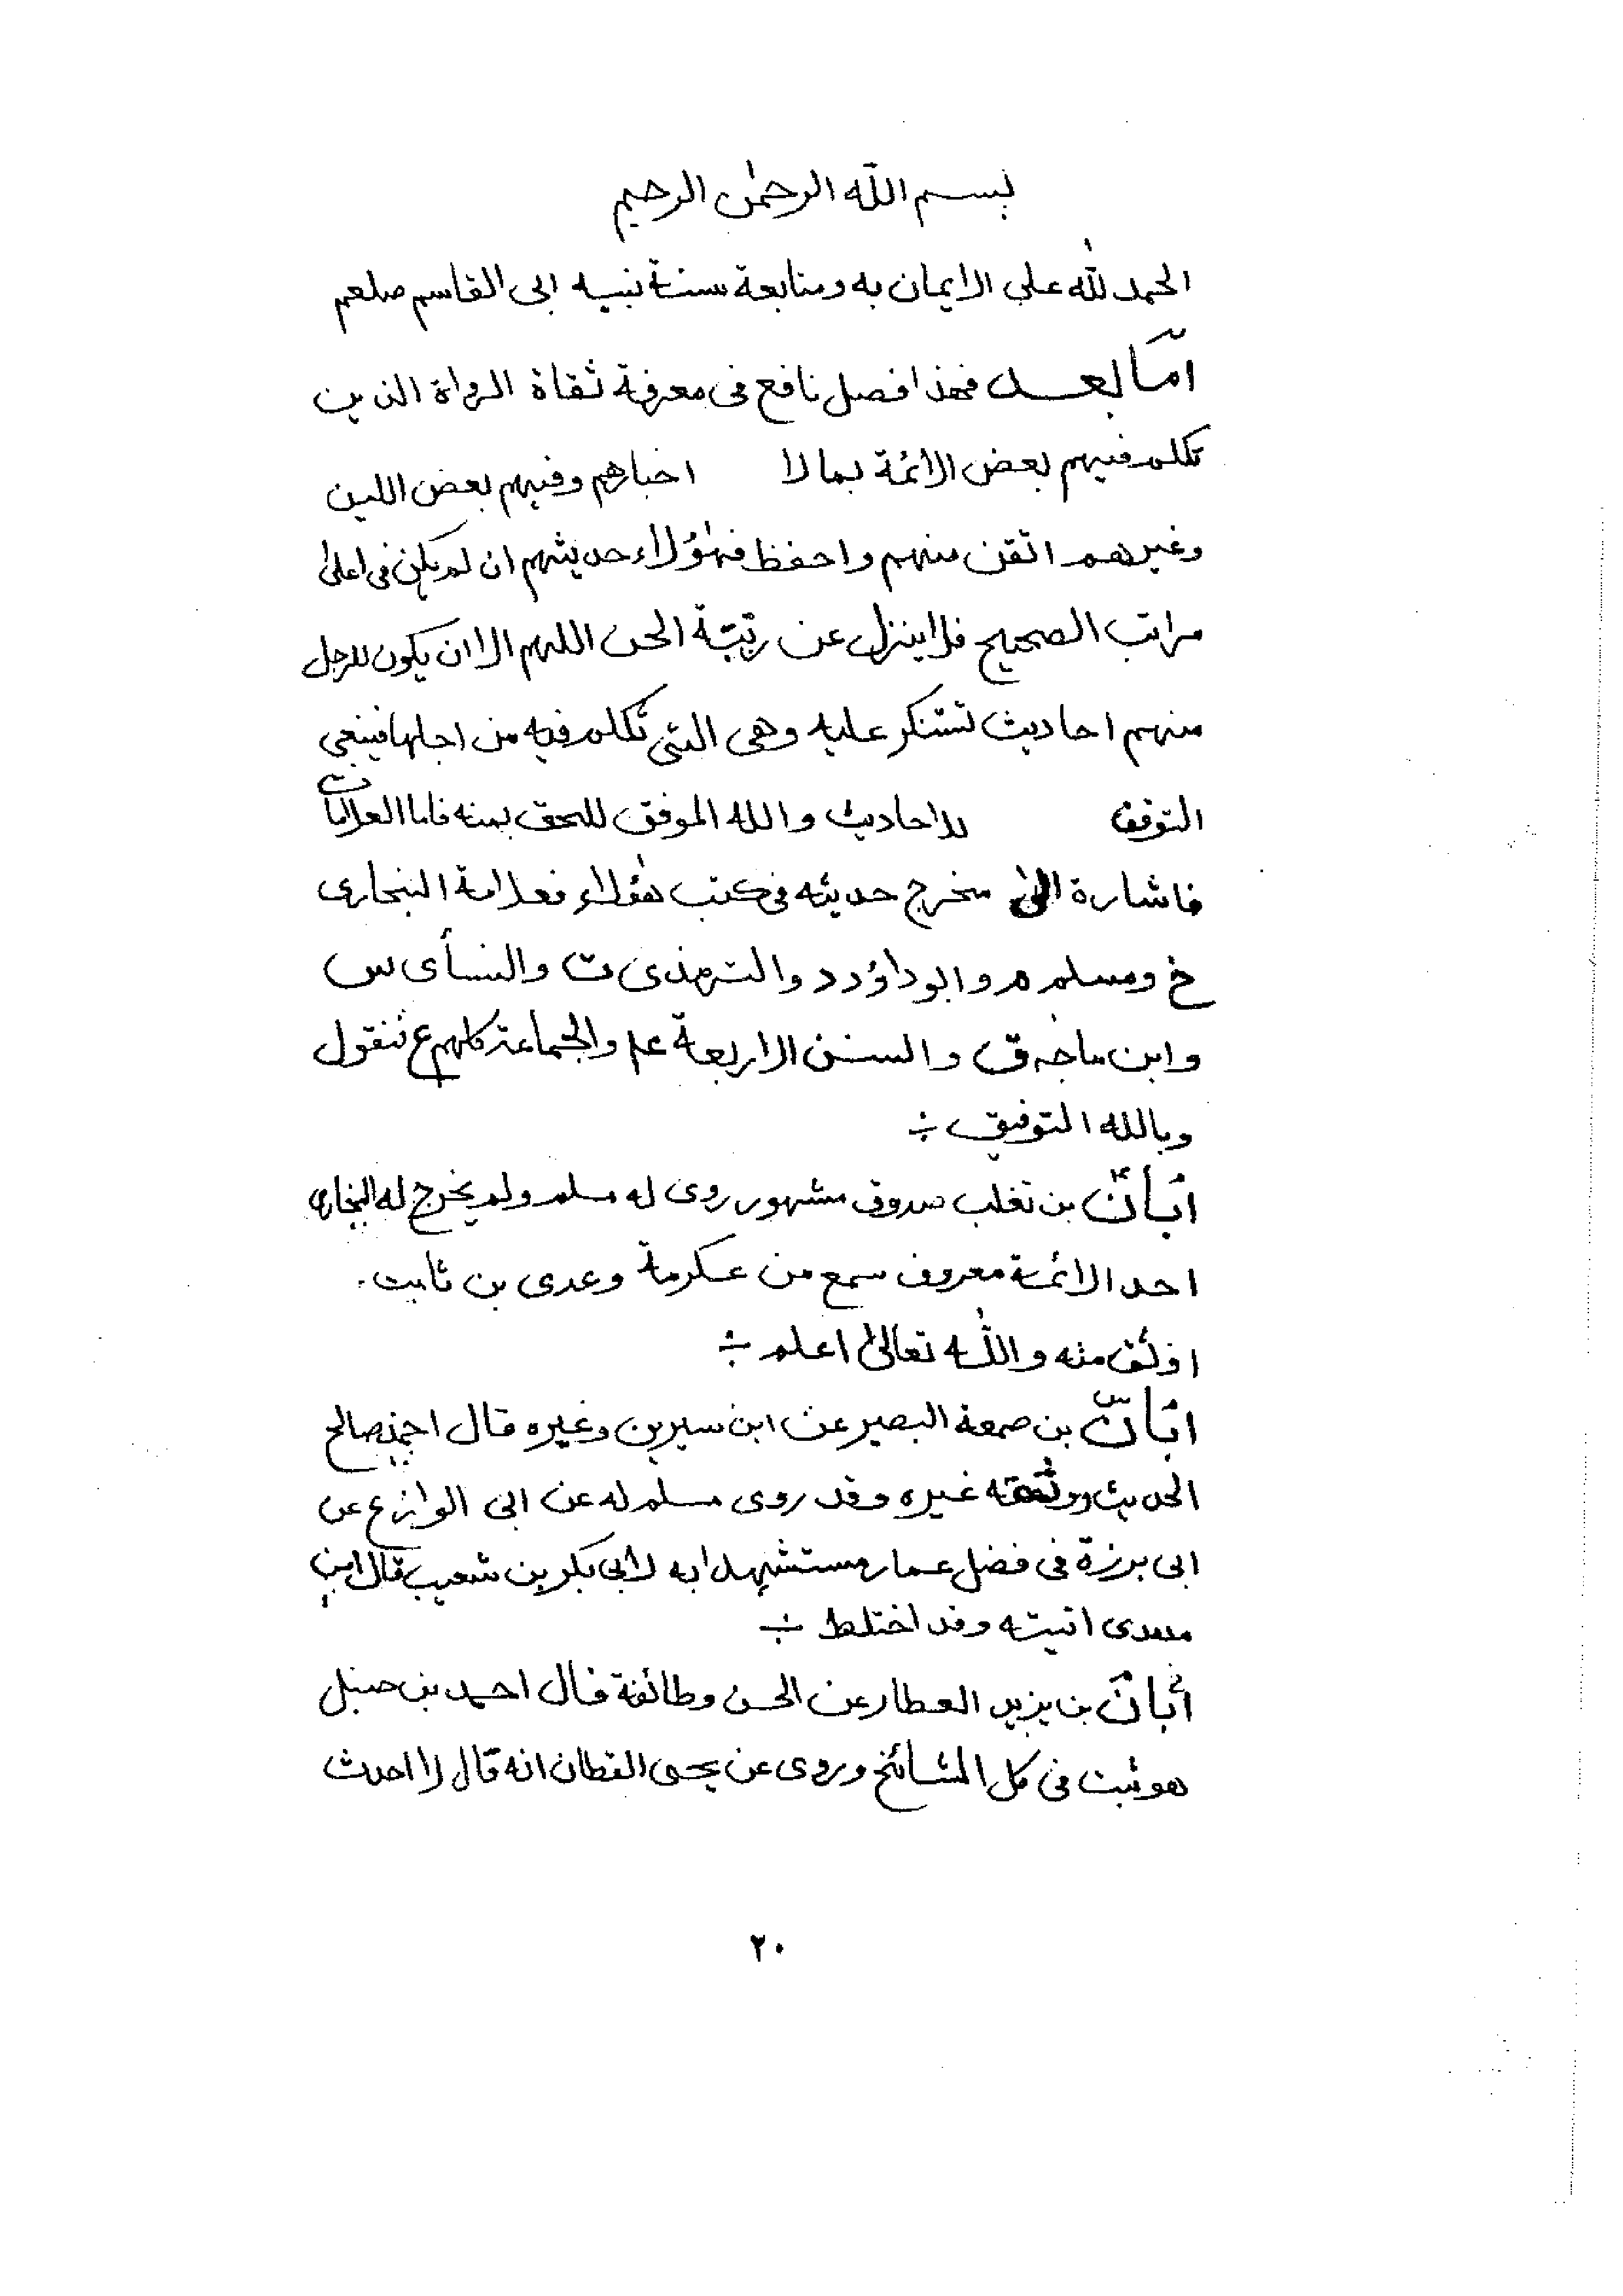 بسم الله الرحمٰن الرحيم
الحمد لله على الايمان به ومتابعة سنة نبيه ابى القاسم صلعم
امّا بعد فهذا فصل نافع فى معرفة ثقاة الرواة الذين
تكلم فيهم بعض الائمة بما لا اخبارهم وفيهم بعض اللين
وغيرهم اتقن منهم واحفظ فهٰؤلاء حديثهم ان لم يكن فى اعلىٰ
مراتب الصحيح فلا ينزل عن رتبة الحسن اللهم الا ان يكون للرجل
منهم احاديث تستنكر عليه وهى التى تكلم فيه من اجلها فينبغى
التوقف للاحاديث والله الموفق للحق بمنه فاما العلامات
فاشارة الىٰ مخرج حديثه فى كتب هٰؤلاء فعلامة البخارى
خ ومسلم م وابوداؤد د والترمذى ت والنسأى س
وابن ماجه ق والسنن الاربعة عه والجماعة كلهم ع فنقول
وبالله التوفيق ÷
أبانّ بن تغلب صدوق مشهور روى له مسلم ولم يخرج له البخارى
احد الائمة معروف سمع من عكرمة وعدى بن ثابت.
اوثق منه واللّٰه تعالىٰ اعلم ÷
ابانّ بن صمعة البصير عن ابن سيرين وغيره قال احمد صالح
الحديث ووثقه غيره وقد روى مسلم له عن ابى الوازع عن
ابى برزة فى فضل عمار مستشهدا به لابى بكر بن شعيب قال ابن
مهدى اتيته وقد اختلط ÷
أبان بن يزيد العطار عن الحسن وطائفة قال احمد بن حنبل
هو ثبت فى كل المشائخ وروى عن يحيى القطان انه قال لا احدث
٢٠